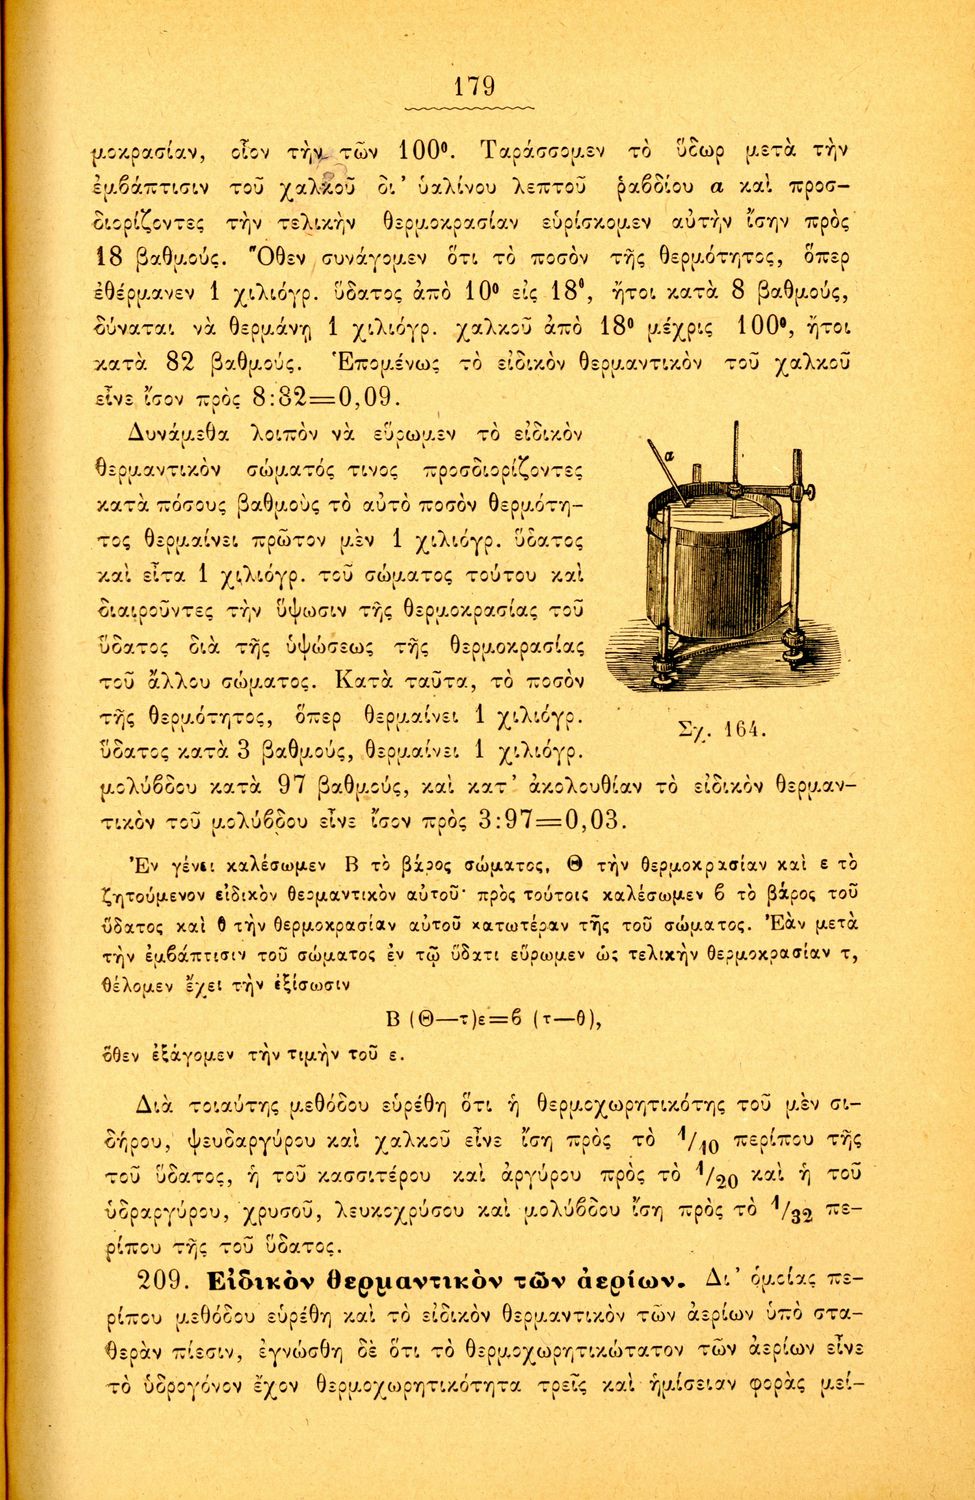 179
μοκρασίαν, οἷον τὴν τῶν 100⁰. Ταράσσομεν τὸ ὕδωρ μετὰ τὴν
ἐμβάπτισιν τοῦ χαλκοῦ δι’ ὑαλίνου λεπτοῦ ῥαβδίου α καὶ προσ—
διορίζοντες τὴν τελικὴν θερμοκρασίαν εὑρίσκομεν αὐτὴν ἴσην πρὸς
18 βαθμούς. Ὅθεν συνάγομεν ὅτι τὸ ποσὸν τῆς θερμότητος, ὅπερ
ἐθέρμανεν 1 χιλιόγρ. ὕδατος ἀπὸ 10⁰ εἰς 18⁰, ἤτοι κατὰ 8 βαθμούς,
δύναται νὰ θερμάνῃ 1 χιλιόγρ. χαλκοῦ ἀπὸ 18⁰ μέχρις 100⁰, ἤτοι
κατὰ 82 βαθμούς. Ἑπομένως τὸ εἰδικὸν θερμαντικὸν τοῦ χαλκοῦ
εἶνε ἴσον πρὸς 8:82=0,09.
Δυνάμεθα λοιπὸν νὰ εὕρωμεν τὸ εἰδικὸν
θερμαντικὸν σώματός τινος προσδιορίζοντες
κατὰ πόσους βαθμοὺς τὸ αὐτὸ ποσὸν θερμότη—
τος θερμαίνει πρῶτον μὲν 1 χιλιόγρ. ὕδατος
καὶ εἶτα 1 χιλιόγρ. τοῦ σώματος τούτου καὶ
διαιροῦντες τὴν ὕψωσιν τῆς θερμοκρασίας τοῦ
ὕδατος διὰ τῆς ὑψώσεως τῆς θερμοκρασίας
τοῦ ἄλλου σώματος. Κατὰ ταῦτα, τὸ ποσὸν
τῆς θερμότητος, ὅπερ θερμαίνει 1 χιλιόγρ.
ὕδατος κατὰ 3 βαθμούς, θερμαίνει 1 χιλιόγρ.
α
Σχ. 164.
μολύβδου κατὰ 97 βαθμούς, καὶ κατ’ ἀκολουθίαν τὸ εἰδικὸν θερμαν—
τικὸν τοῦ μολύβδου εἶνε ἴσον πρὸς 3:97=0,03.
Ἐν γένει καλέσωμεν Β τὸ βάρος σώματος, Θ τὴν θερμοκρασίαν καὶ ε τὸ
ζητούμενον εἰδικὸν θερμαντικὸν αὐτοῦ· πρὸς τούτοις καλέσωμεν β τὸ βάρος τοῦ
ὕδατος καὶ θ τὴν θερμοκρασίαν αὐτοῦ κατωτέραν τῆς τοῦ σώματος. Ἐὰν μετὰ
τὴν ἐμβάπτισιν τοῦ σώματος ἐν τῷ ὕδατι εὕρωμεν ὡς τελικὴν θερμοκρασίαν τ,
θέλομεν ἔχει τὴν ἐξίσωσιν
Β (Θ—τ)ε=β (τ—θ),
ὅθεν ἐξάγομεν τὴν τιμὴν τοῦ ε.
Διὰ τοιαύτης μεθόδου εὑρέθη ὅτι ἡ θερμοχωρητικότης τοῦ μὲν σι—
δήρου, ψευδαργύρου καὶ χαλκοῦ εἶνε ἴση πρὸς τὸ 1/10 περίπου τῆς
τοῦ ὕδατος, ἡ τοῦ κασσιτέρου καὶ ἀργύρου πρὸς τὸ 1/20 καὶ ἡ τοῦ
ὑδραργύρου, χρυσοῦ, λευκοχρύσου καὶ μολύβδου ἴση πρὸς τὸ 1/32 πε—
ρίπου τῆς τοῦ ὕδατος.
209. Εἰδικὸν θερμαντικὸν τῶν ἀερίων. Δι’ ὁμοίας πε—
ρίπου μεθόδου εὑρέθη καὶ τὸ εἰδικὸν θερμαντικὸν τῶν ἀερίων ὑπὸ στα—
θερὰν πίεσιν, ἐγνώσθη δὲ ὅτι τὸ θερμοχωρητικώτατον τῶν ἀερίων εἶνε
τὸ ὑδρογόνον ἔχον θερμοχωρητικότητα τρεῖς καὶ ἡμίσειαν φορὰς μεί—